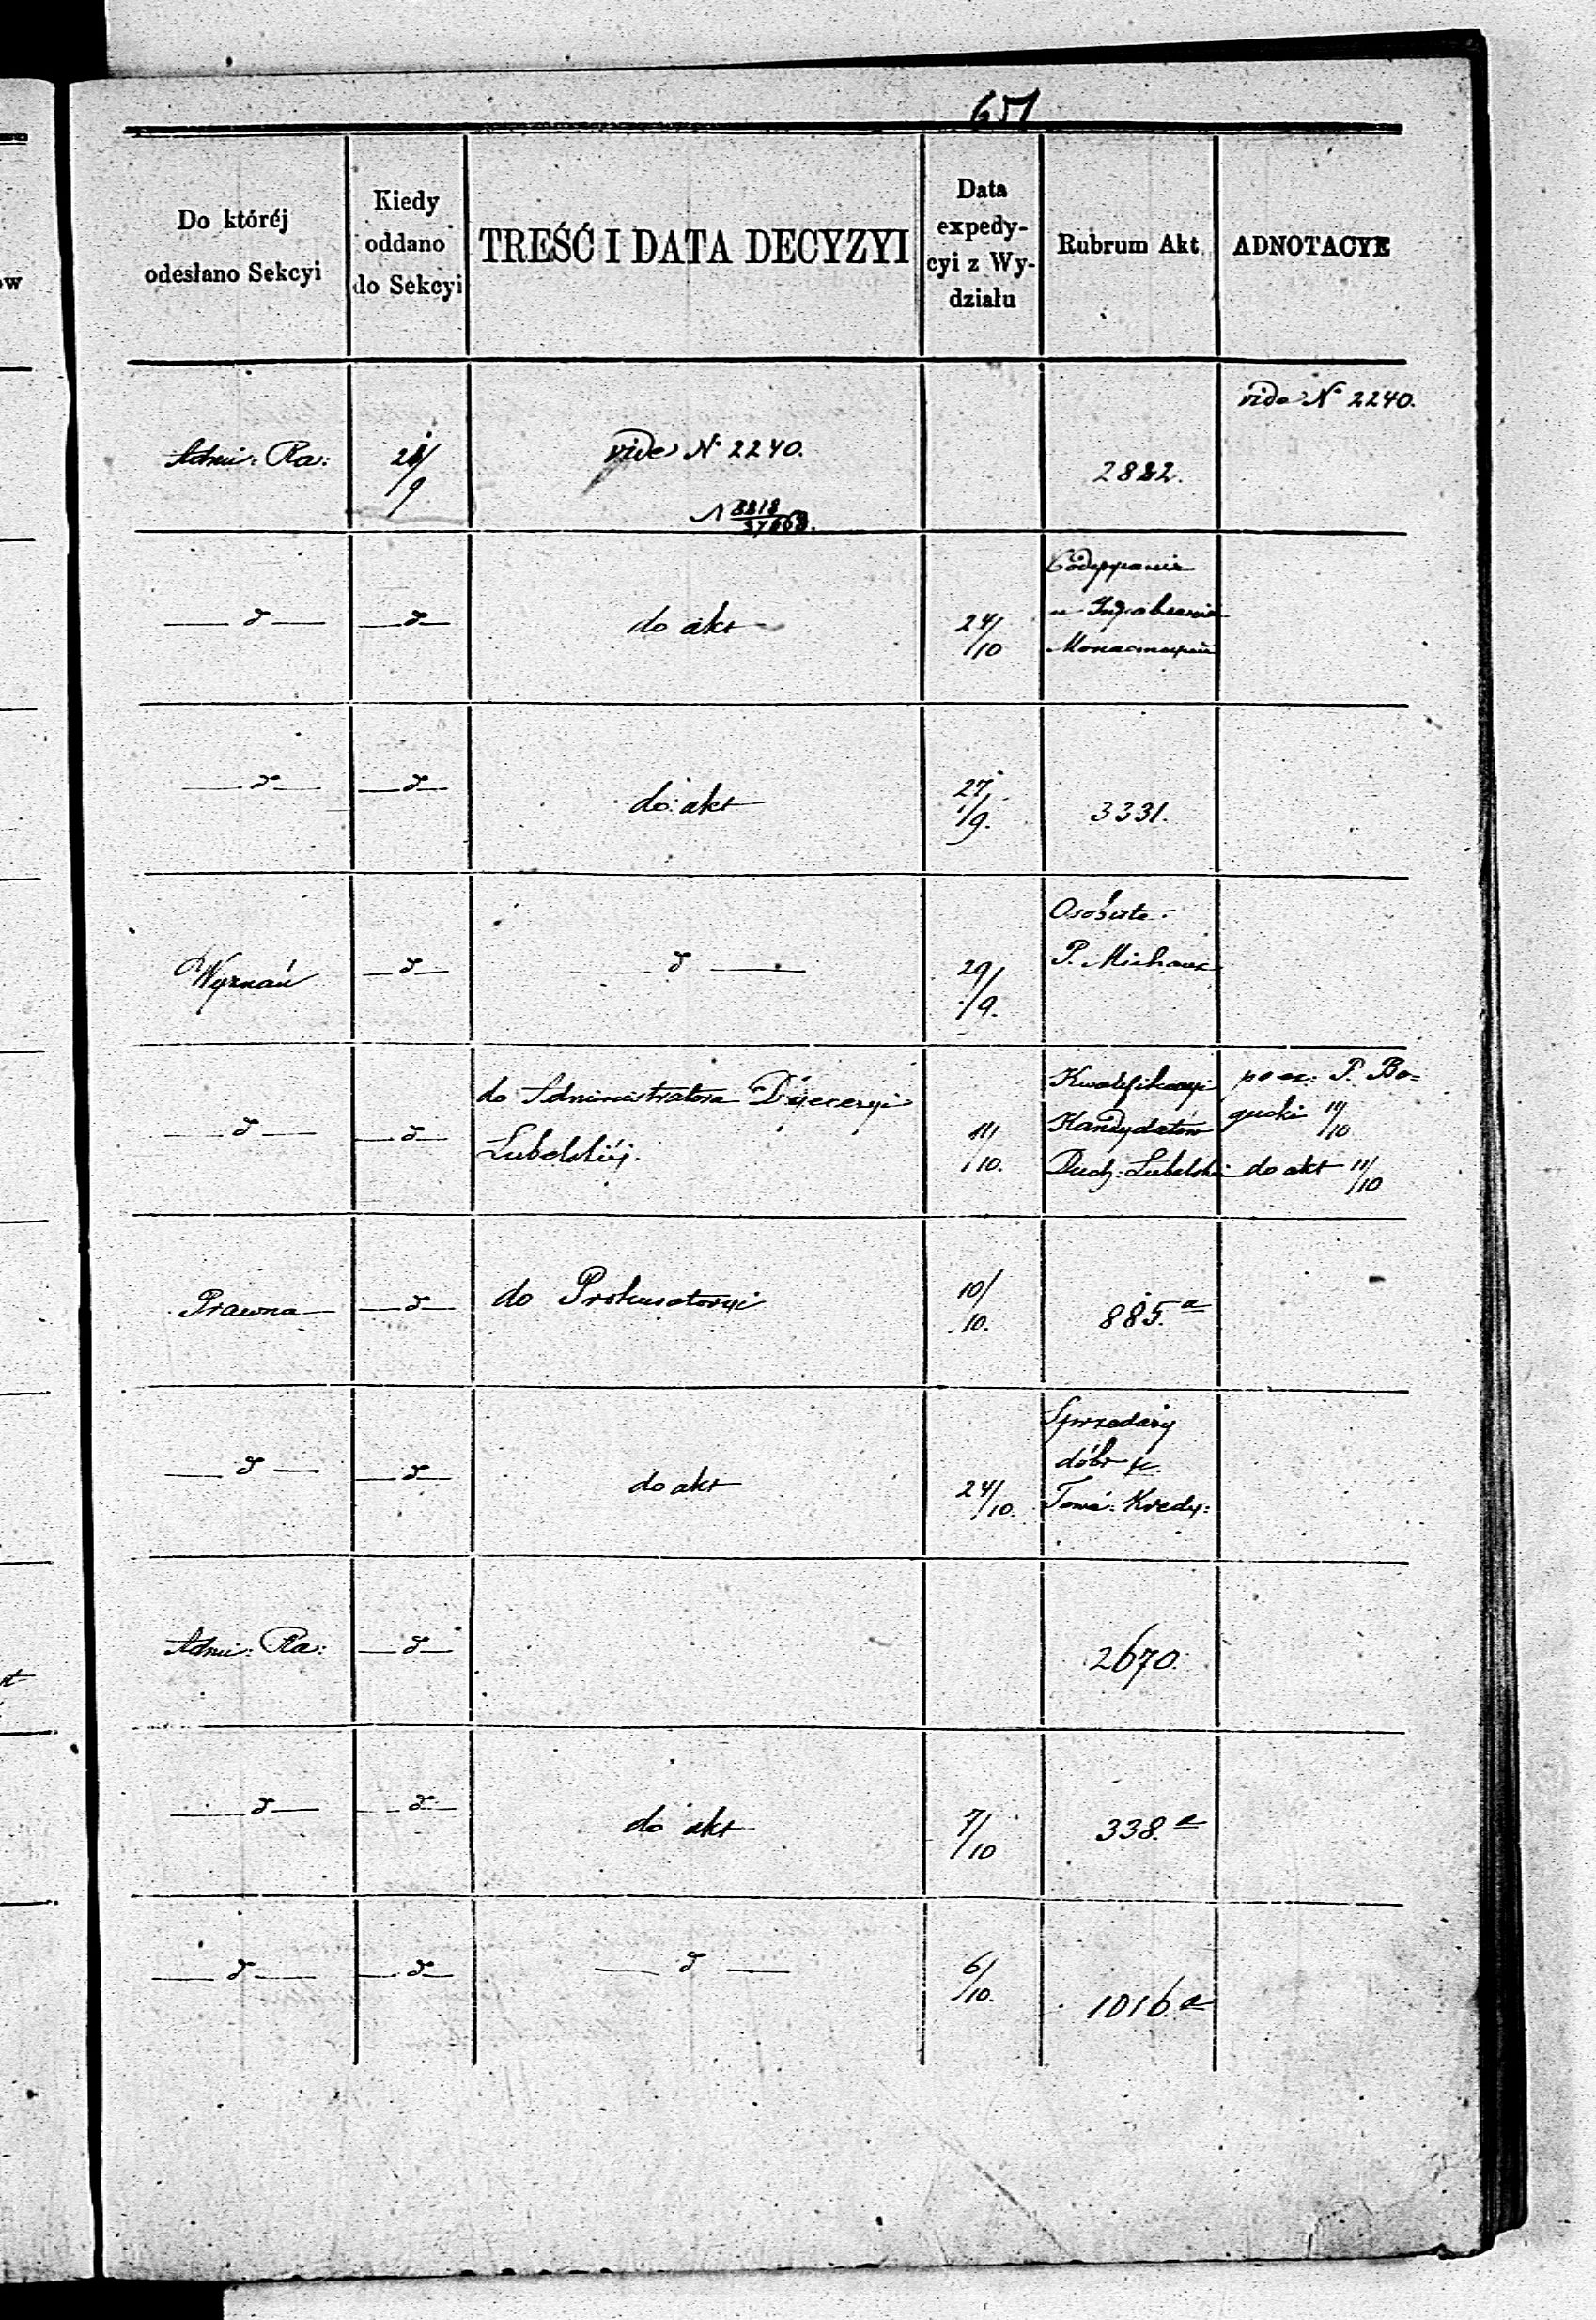 651
Do któréj
odesłano Sekcyi
Kiedy
oddano
do Sekcyi
TREŚĆ I DATA DECYZYI
Data
expedy-
cyi z Wy-
działu
Rubrum Akt
ADNOTACYE
vide N° 2240.
Admi: Ra:
/9
vide N° 2240.
2882.
N 8818
— d —
— d —
do akt
24/10
— d —
— d —
do akt
27/9.
3331.
Wyznań
— d —
— d —
29/9.
Osobiste
P. Michaux
— d —
— d —
do Administratora Dyecezyi
Lubelskiéj.
11/10.
Kwalifikacyi
Kandydatów
Duch: Lubelski
po ex: P. Bo=
gucki 11/10
do akt 11/10
Prawna
— d —
do Prokuratoryi
10/10.
885.a
— d —
— d —
do akt
24/10.
Sprzedaży
dóbr
Towa: Kredy:
Admi: Ra:
— d —
2670.
— d —
— d —
do akt
7/10
338.a
— d —
— d —
— d —
6/10.
1016.a